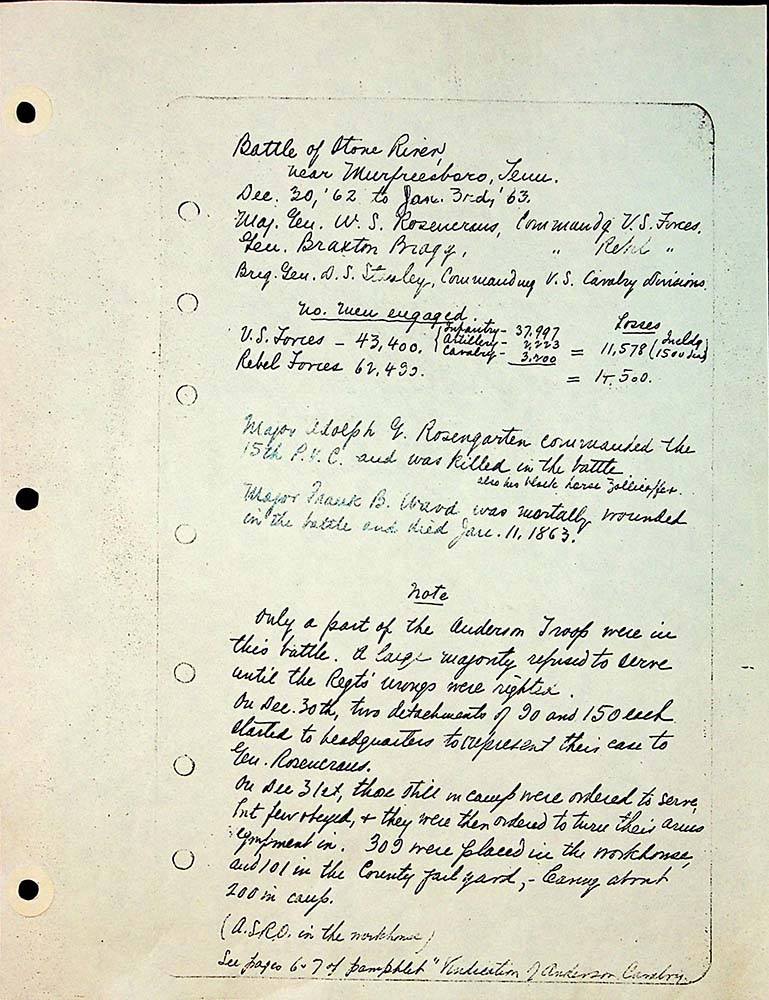 Battle of Stone River,
near Murfreesboro, Tenn.
Dec. 30, '62 to Jan. 3rd, '63.
Maj. Gen. W. S. Rosencrans, Commandg U.S. Forces.
Gen. Braxton Bragg, " Rebel "
Brig. Gen. D. S. Stanley, Commanding U.S. Cavalry divisions.
No. men engaged. Losses
U.S. Forces – 43,400. { Infantry – 37,997
Artillery – 2,223
Cavalry – 3,200 = 11,578 (Incldg 1500
Rebel Forces 62,490. = 14,500.
Major Adolph G. Rosengarten commanded the
15th P.V.C. and was killed in the battle
also his black horse Zollicoffer.
Major Frank B. Ward was mortally wounded
in the battle and died Jan. 11, 1863.
Note
Only a part of the Anderson Troop were in
this battle. A large majority refused to serve
until the Regts' wrongs were righted.
On Dec. 30th, two detachments of 90 and 150 each
started to headquarters to represent their case to
Gen. Rosencrans.
On Dec 31st, those still in camp were ordered to serve,
but few obeyed, & they were then ordered to turn their arms
equipment in. 309 were placed in the workhouse,
and 101 in the County jail yard, – leaving about
200 in camp.
(A.S.R.O. in the workhouse)
See pages 6-7 of pamphlet "Vindication of Anderson Cavalry.